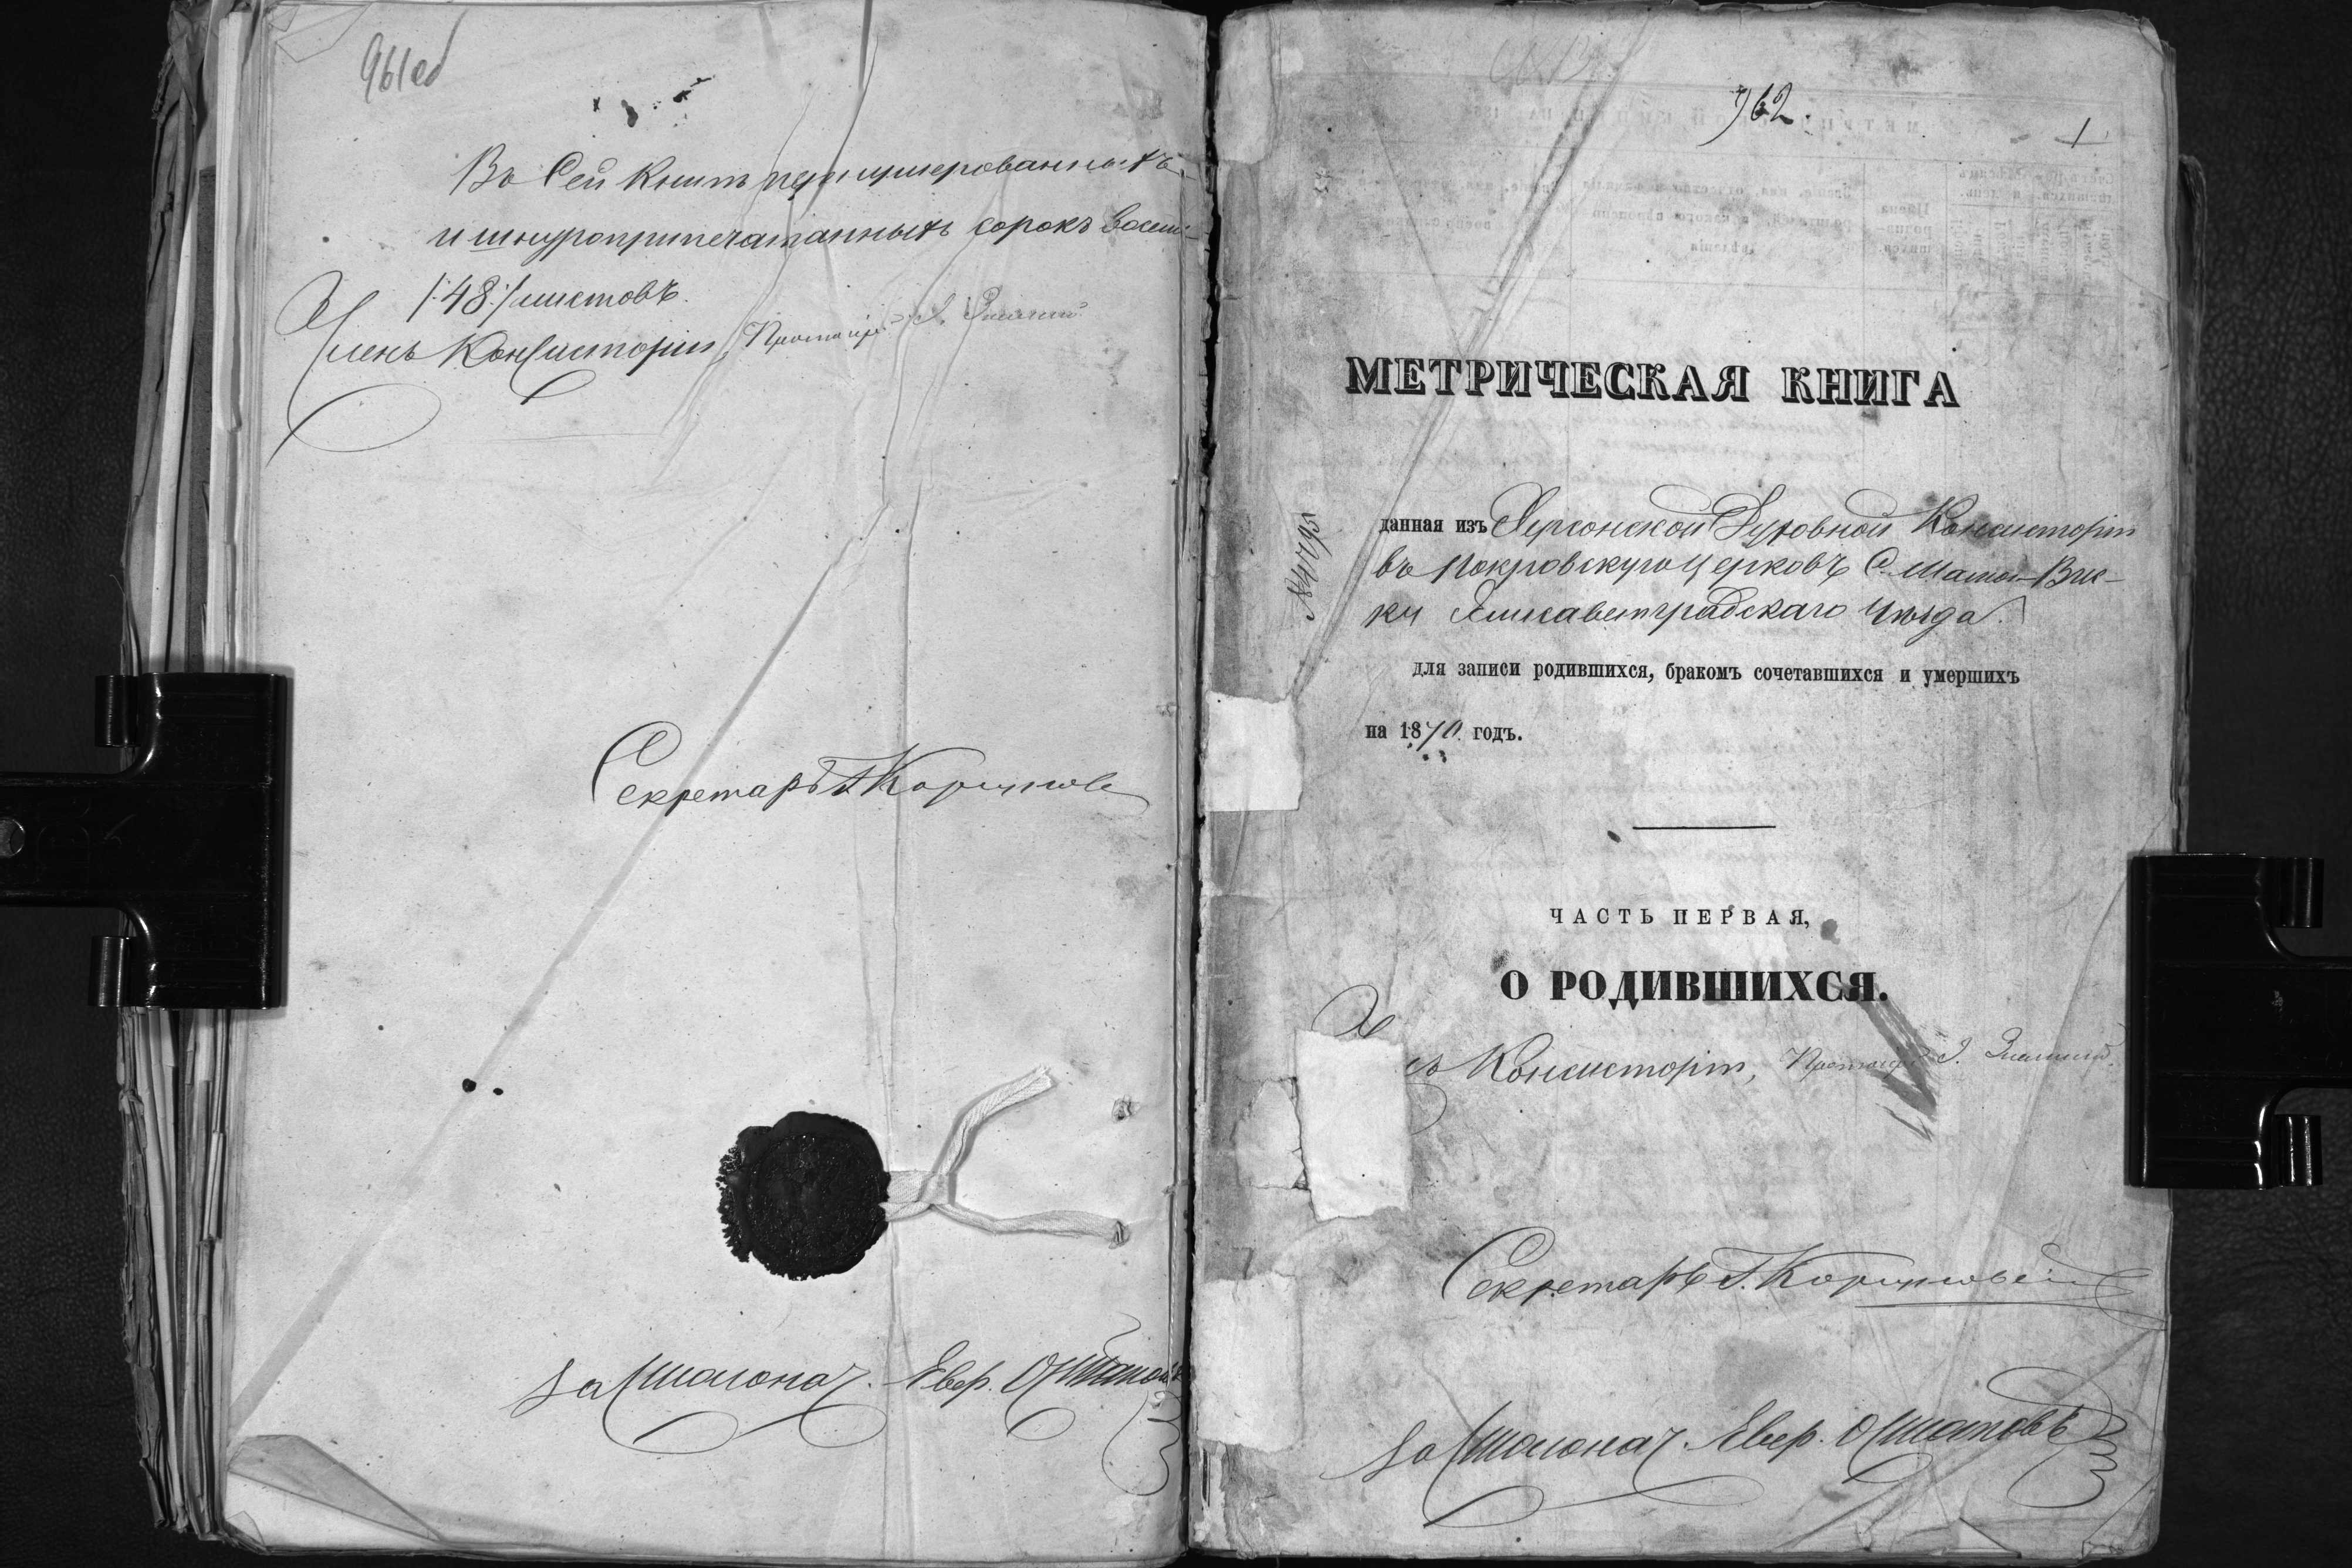 961об
Въ Сей Книгѣ перенумерованныхъ
и шнуроприпечатанныхъ сорокъ восемь
/:48:/ листовъ.
Членъ Консисторіи, Протоіерей І.
Секретарь Г. Корчинскій
За Столонач. Евер.
962.
1
МЕТРИЧЕСКАЯ КНИГА
данная изъ Херсонской Духовной Консисторіи
въ Покровскую церковь С. Малой-Вис-
ки Елисаветградскаго Уѣзда.
для записи родившихся, бракомъ сочетавшихся и умершихъ
на 1870 годъ.
ЧАСТЬ ПЕРВАЯ,
О РОДИВШИХСЯ.
Консисторіи, Протоіерей І.
Секретарь Г.
За Столонач. Евер.